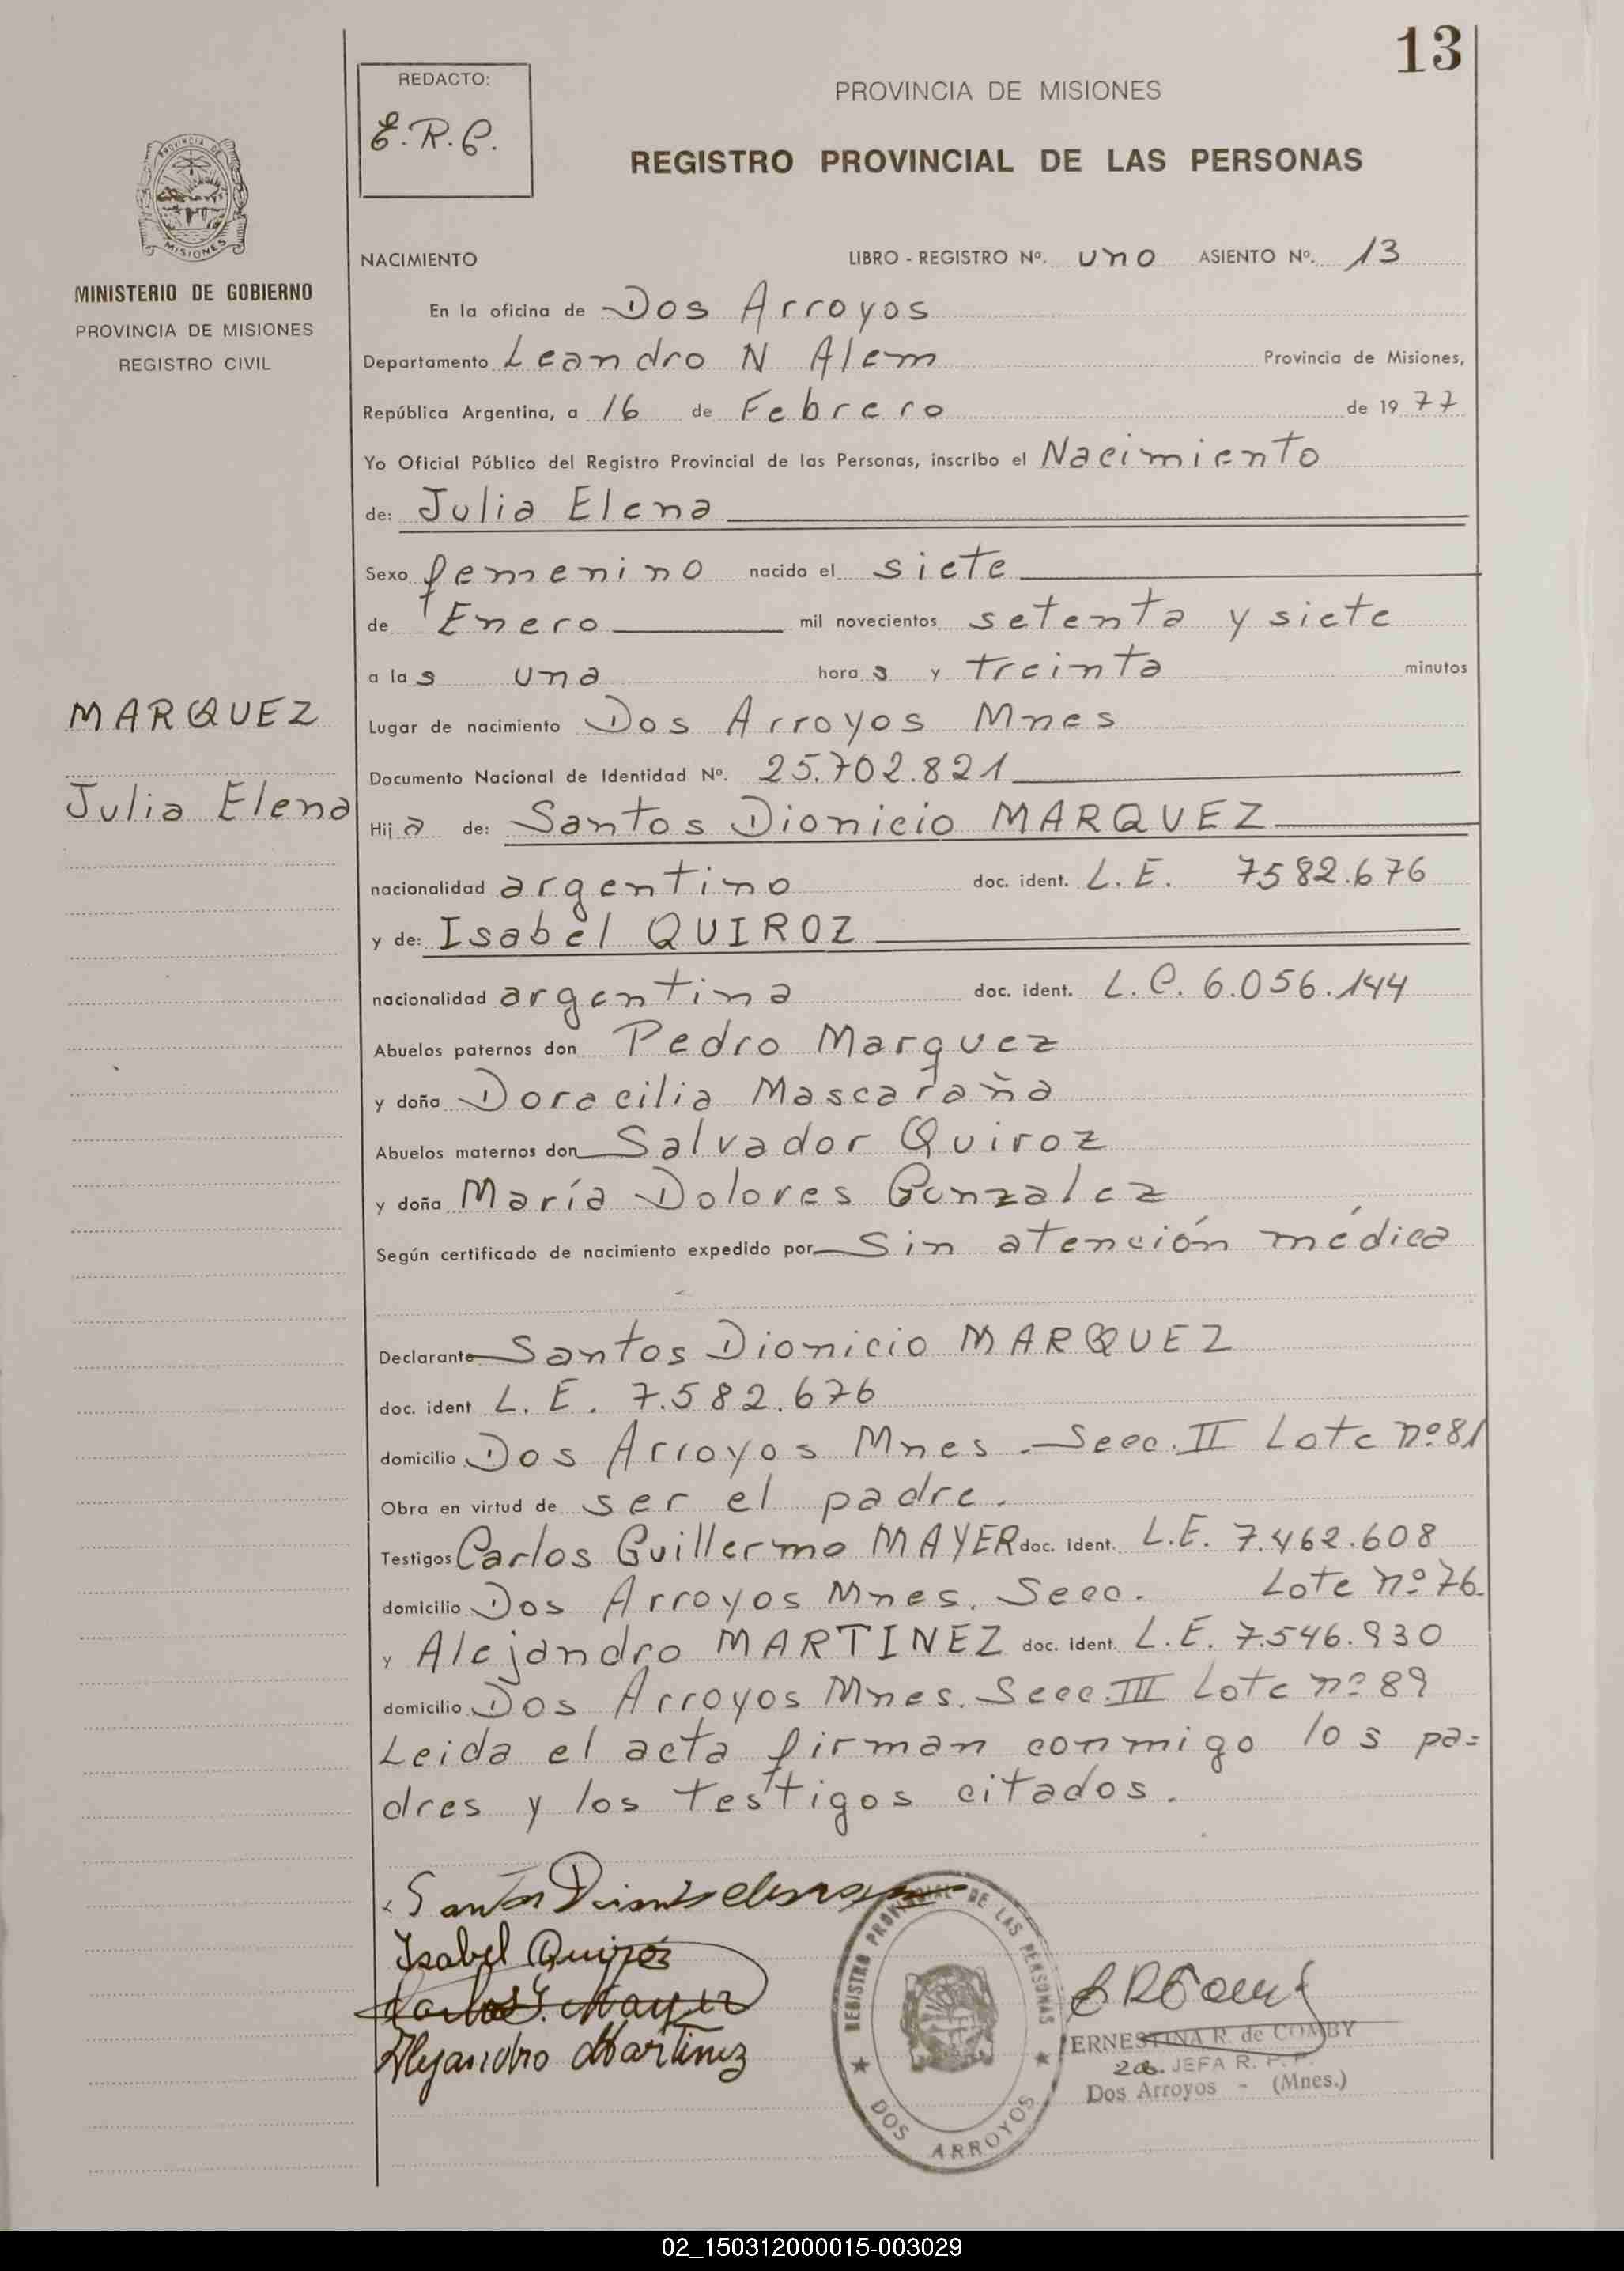 13
REDACTO:
E.R.C.
PROVINCIA DE MISIONES
REGISTRO PROVINCIAL DE LAS PERSONAS
PROVINCIA DE
MISIONES
MINISTERIO DE GOBIERNO
PROVINCIA DE MISIONES
REGISTRO CIVIL
NACIMIENTO LIBRO - REGISTRO Nº. uno ASIENTO Nº. 13
En la oficina de Dos Arroyos
Departamento Leandro N Alem Provincia de Misiones,
República Argentina, a 16 de Febrero de 1977
Yo Oficial Público del Registro Provincial de las Personas, inscribo el Nacimiento
de: Julia Elena
Sexo femenino nacido el siete
de Enero mil novecientos setenta y siete
a las una horas y treinta minutos
MARQUEZ
Julia Elena
Lugar de nacimiento Dos Arroyos Mnes
Documento Nacional de Identidad Nº. 25.702.821
Hija de: Santos Dionicio MARQUEZ
nacionalidad argentino doc. ident. L.E. 7582.676
y de: Isabel QUIROZ
nacionalidad argentina doc. ident. L.C. 6.056.144
Abuelos paternos don Pedro Marquez
y doña Doracilia Mascaraña
Abuelos maternos don Salvador Quiroz
y doña María Dolores Gonzalez
Según certificado de nacimiento expedido por Sin atención médica
Declarante Santos Dionicio MARQUEZ
doc. ident L.E. 7.582.676
domicilio Dos Arroyos Mnes - Secc. II Lote nº 81
Obra en virtud de ser el padre.
Testigos Carlos Guillermo MAYER doc. ident. L.E. 7.462.608
domicilio Dos Arroyos Mnes. Secc. Lote nº 76
y Alejandro MARTINEZ doc. ident. L.E. 7.546.930
domicilio Dos Arroyos Mnes. Secc. III Lote nº 89
Leida el acta firman conmigo los pa=
dres y los testigos citados.
Isabel Quiroz
Carlos G. Mayer
Alejandro Martinez
REGISTRO PROVINCIAL DE LAS PERSONAS
DOS ARROYOS
ERNESTINA R. de COMBY
JEFA R. P. P.
Dos Arroyos - (Mnes.)
02_150312000015-003029